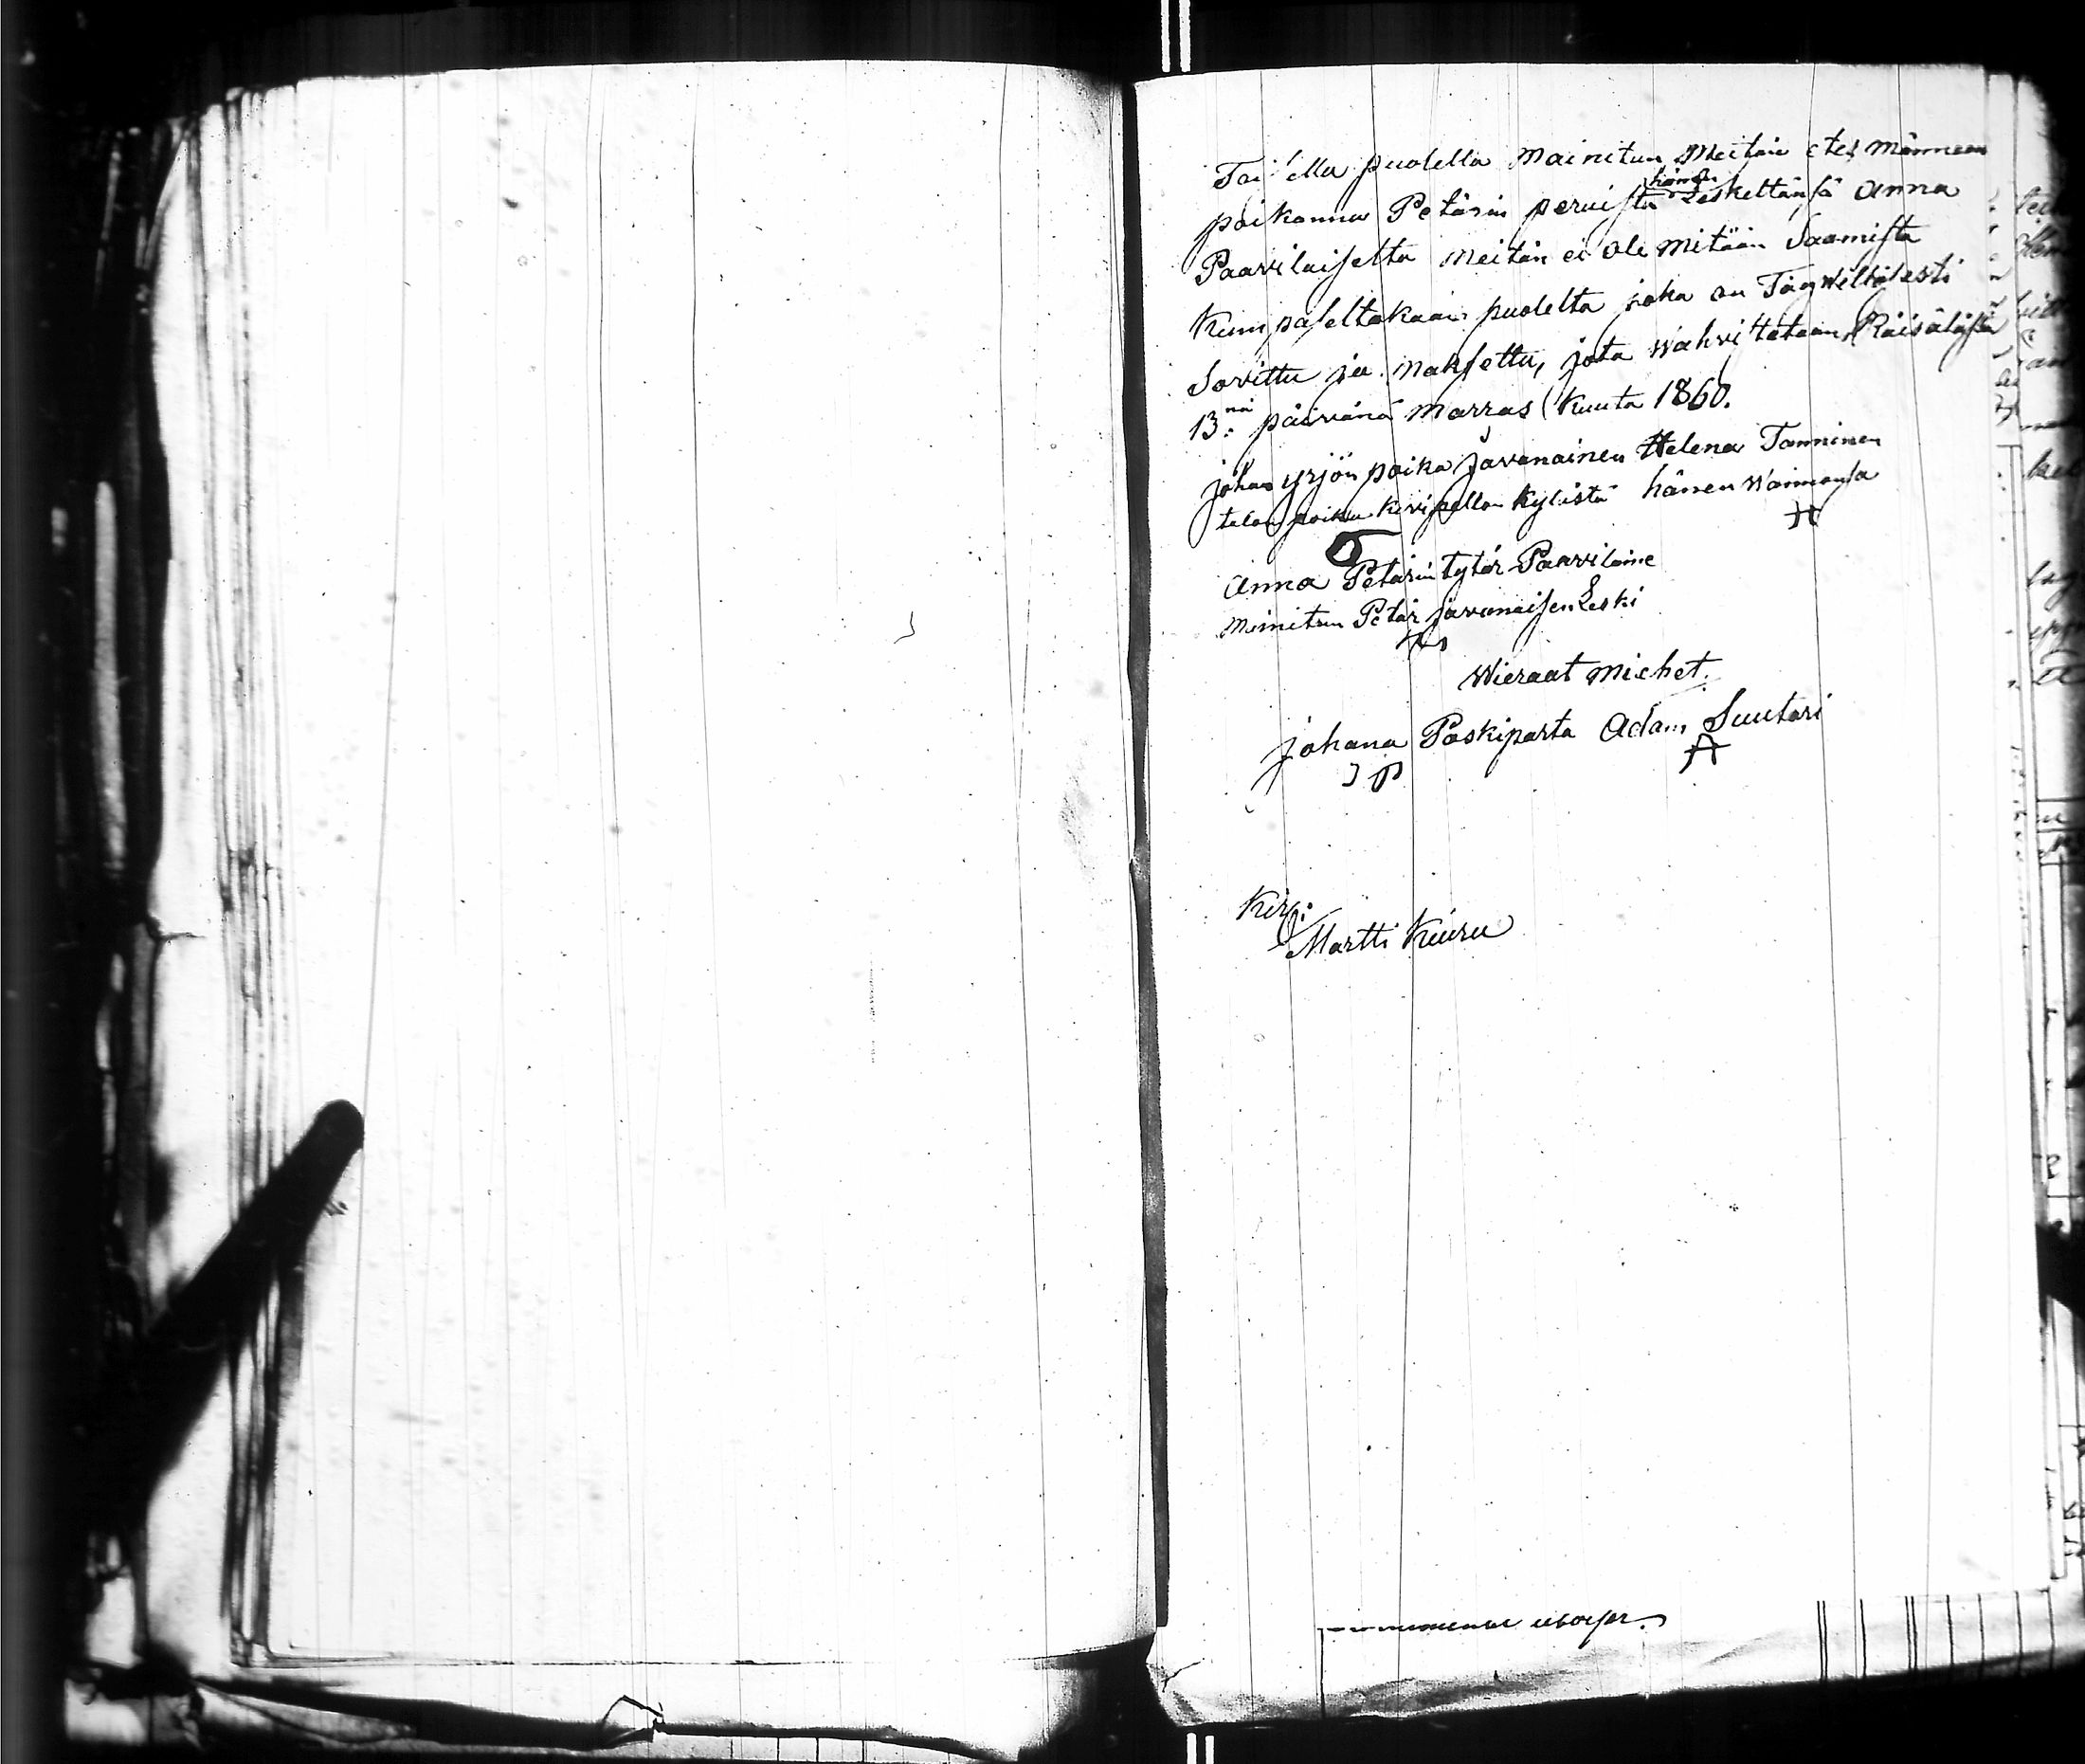 Toi'ella puolella Mainitun Meitän etes männeen
poikamme Petärin peruista hänen Leskeltänsä Anna
Paavilaiselta Meitän ei ole mitään Saamista
Kumpaseltakaan puolelta joka on Täyweltisesti
Sovittu ja Maksettu, jota wahvistetaan, Räisäläsä
13:nä päivänä Marras Kuuta 1860.
johan yrjön poika Javanainen Helena Tanninen
telan poika kivipellon kylästä hänen waimonsa
H
Anna Petärin tytär Paavilaine
Meinitun Petär javanaisen Leski
wieraat miehet.
johana Paskiparta Adam Suutari
J P A
Kirj:
Martti Kiuru